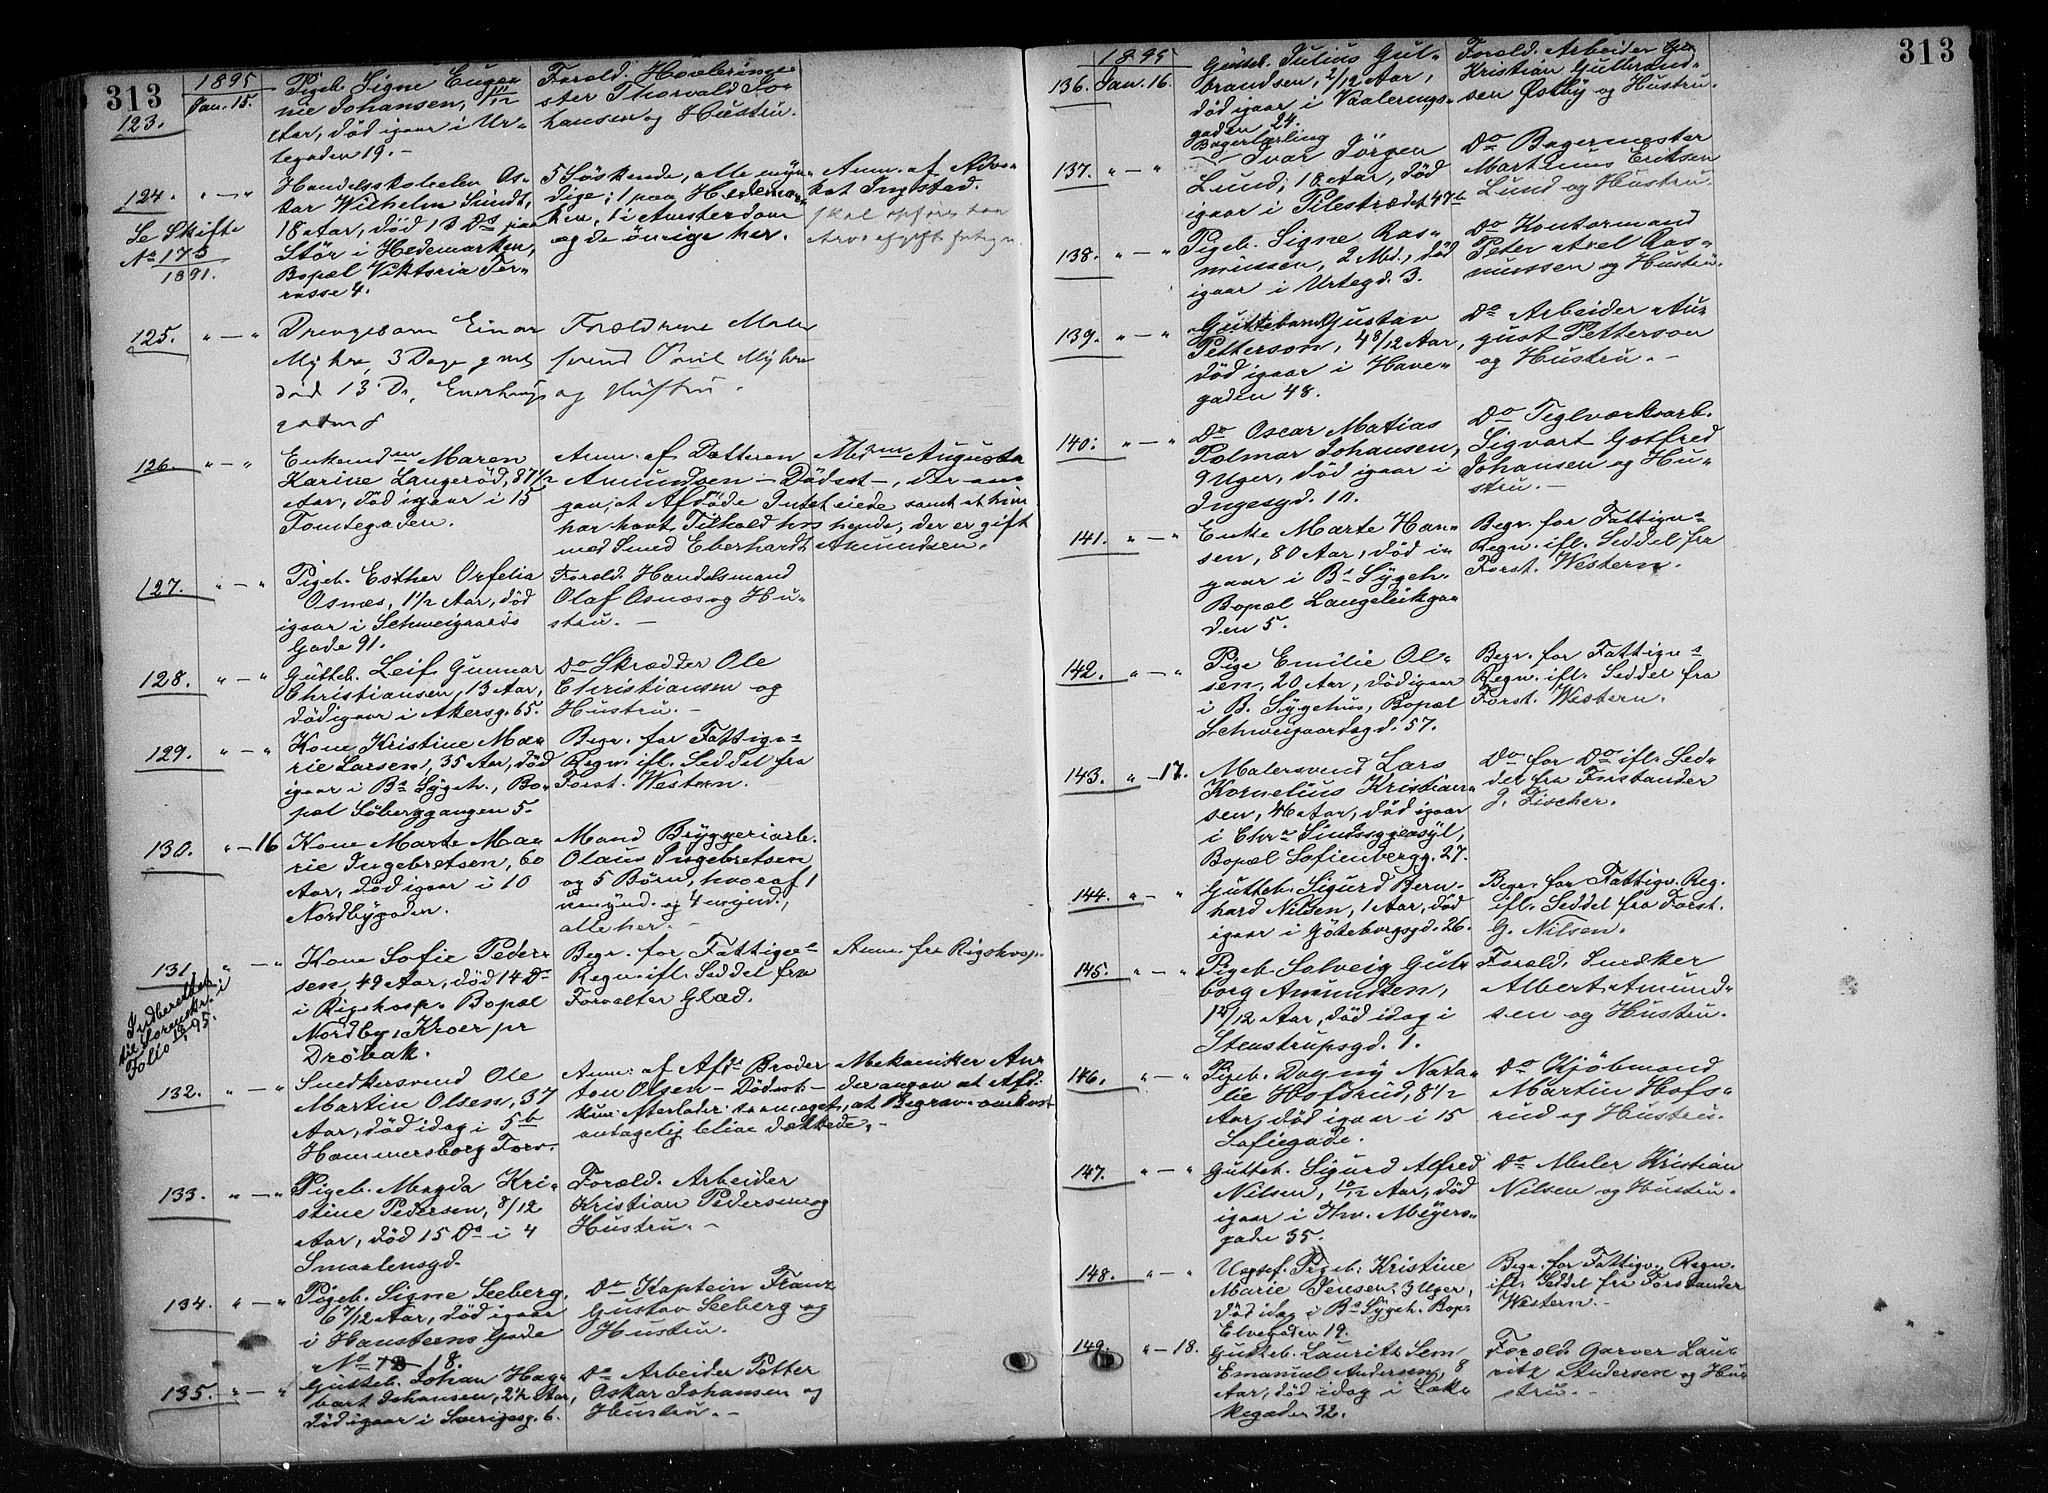 313
1895
123.
Jan. 15.
Pigeb. Signe Euge-
nie Johansen, 11/12
Aar, död igaar i Ur-
tegaden 19. -
Foræld.
ster Thorvald Jo-
hansen og Hustru.
124.
" - "
Se Skifte
No 175
1891.
Handelsskoleelev Os-
kar Wilhelm Sundt,
18 Aar, död 13 Ds paa
Stör i Hedemarken,
Bopæl Viktoria Ter-
rasse 4.
5 Söskende, alle myn-
dige; 1 paa Hedemar-
ken, 1 i Amsterdam
og de övrige her.
Anm. af Advo-
kat Ingstad.
skal opföres paa
125.
" - "
Drengebarn Einar
Myhre, 3 Dage gml
död 13 Ds, Enerhaug-
gaden 8
Forældrene Maler
svend Emil Myhre
og Hustru.
126.
" - "
Enkemdm Maren
Karine Langeröd, 87 1/2
Aar, död igaar i 15
Tomtegaden.
Anm. af Datteren Mdm Augusta
Amundsen - Dödsst -, der an-
gav, at Afdöde Intet eiede samt at hun
har havt Tilhold hos hende, der er gift
med Smed Eberhardt Amundsen.
127.
" - "
Pigeb. Esther Orfelia
Osnæs, 1 1/2 Aar, död
igaar i Schweigaards
Gade 91.
Foræld. Handelsmand
Olaf Osnæs og Hu-
stru. -
128.
" - "
Gutteb. Leif Gunnar
Christiansen, 13 Aar,
död igaar i Akersg. 65.
Do Skrædder Ole
Christiansen og
Hustru. -
129.
" - "
Kone Kristine Ma-
rie Larsen, 35 Aar, död
igaar i Bs Sygeh., Bo-
pæl Söberggangen 5.
Begr. for Fattigvs
Regn. ifl. Seddel fra
Forst. Western.
130.
" - 16
Kone Marte Ma-
rie Ingebretsen, 60
Aar, död igaar i 10
Nordbygaden.
Mand Bryggeriarb.
Olaus Ingebretsen
og 5 Börn, hvoraf 1
umynd. og 4 mynd.,
alle her. -
131.
" - "
Indberettet
til Sorenskr. i
Follo
Kone Sofie Peder-
sen, 49 Aar, död 14 Ds
i Rigshosp. Bopæl
Nordby, Kroer pr
Dröbak.
Begr. for Fattigvs
Regn. ifl. Seddel fra
Forvalter Glæd.
Anm. fra Rigshosp.
132.
" - "
Snedkersvend Ole
Martin Olsen, 37
Aar, död idag i 5b
Hammersborg Torv.
Anm. af Afds Broder Mekaniker An-
ton Olsen - Dödsst - der angav at Afd.
kun efterlader saameget, at Begrav. omkost
antagelig blive dækkede. -
133.
" - "
Pigeb. Magda Kri-
stine Pedersen, 8/12
Aar, död 15 Ds i 4
Smaalensgd.
Foræld. Arbeider
Kristian Pedersen og
Hustru. -
134.
" - "
Pigeb. Signe Seeberg,
6 7/12 Aar, död igaar
i Hansteens Gade
No 18.
Do Kaptein Franz
Gustav Seeberg og
Hustru.
135.
" - "
Gutteb. Johan Hag-
bart Johansen, 2 1/2 Aar,
död igaar i Sverigesg. 6.
Do Arbeider Petter
Oskar Johansen og
Hustru. -
313
1895
136.
Jan. 16.
Gutteb. Julius Gul-
brandsen, 2/12 Aar,
död igaar i Vaalerengs-
gaden 24.
Foræld. Arbeider
Kristian Gulbrand-
sen Østby og Hustru.
137.
" - "
Bagerlærling
Ivar Jörgen
Lund, 18 Aar, död
igaar i Pilestrædet 47b
Do Bagermester
Martinus Eriksen
Lund og Hustru.
138.
" - "
Pigeb. Signe Ras-
mussen, 2 Md., död
igaar i Urtegd. 3.
Do Kontormand
Peter Axel Ras-
mussen og Hustru.
139.
" - "
Guttebarn Gustav
Petterson, 4 8/12 Aar,
död igaar i Have-
gaden 48.
Do Arbeider Au-
gust Petterson
og Hustru. -
140.
" - "
Do Oscar Matias
Polmar Johansen,
9 Uger, död igaar i
Ingesgd. 10.
Do Teglværksarb.
Sigvart Gotfred
Johansen og Hu-
stru. -
141.
" - "
Enke Marte Han-
sen, 80 Aar, död i-
gaar i Bs Sygeh.
Bopæl Langeleikga-
den 5.
Begr. for Fattigvs
Regn. ifl. Seddel fra
Forst. Western.
142.
" - "
Pige Emilie Ol-
sen, 20 Aar, död igaar
i B. Sygehus, Bopæl
Schweigaardsgd. 57.
Begr. for Fattigvs
Regn. ifl. Seddel fra
Forst. Western.
143.
" - 17.
Malersvend Lars
Kornelius Kristian-
sen, 46 Aar, död igaar
i Chra Sindssygeasyl,
Bopæl Sofienbergg. 27.
Do for Do ifl. Sed-
del fra Forstander
J. Fischer.
144.
" - "
Gutteb. Sigurd Bern-
hard Nilsen, 1 Aar, död
igaar i Göteborgsgd. 26.
Begr. for Fattigv. Reg.
ifl. Seddel fra Forst.
G. Nilsen.
145.
" - "
Pigeb. Solveig Gut-
borg Amundsen,
/12 Aar, död idag i
Stenstrupsgd. 1.
Foræld. Snedker
Albert Amund-
sen og Hustru.
146.
" - "
Pigeb. Dagny Nata-
lie Hofsrud, 8 1/2
Aar, död igaar i 15
Sofiegade.
Do Kjöbmand
Martin Hofs-
rud og Hustru.
147.
" - "
Gutteb. Sigurd Alfred
Nilsen, 10/12 Aar, död
igaar i Thv. Meyers-
gade 35.
Do Maler Kristian
Nilsen og Hustru.
148.
" - "
Uægtef. Pigeb. Kristine
Marie Jensen, 3 Uger,
död idag i Bs Sygeh. Bop.
Elvegaden 19.
Begr. for Fattigv. Regn.
ifl. Seddel fra Forstander
Western. -
149.
" - 18.
Gutteb. Lauritz Sem
Emanuel Andersen, 8
Aar, död idag i Lak-
kegaden 32.
Foræld. Garver Lau-
ritz Andersen og Hu-
stru. -